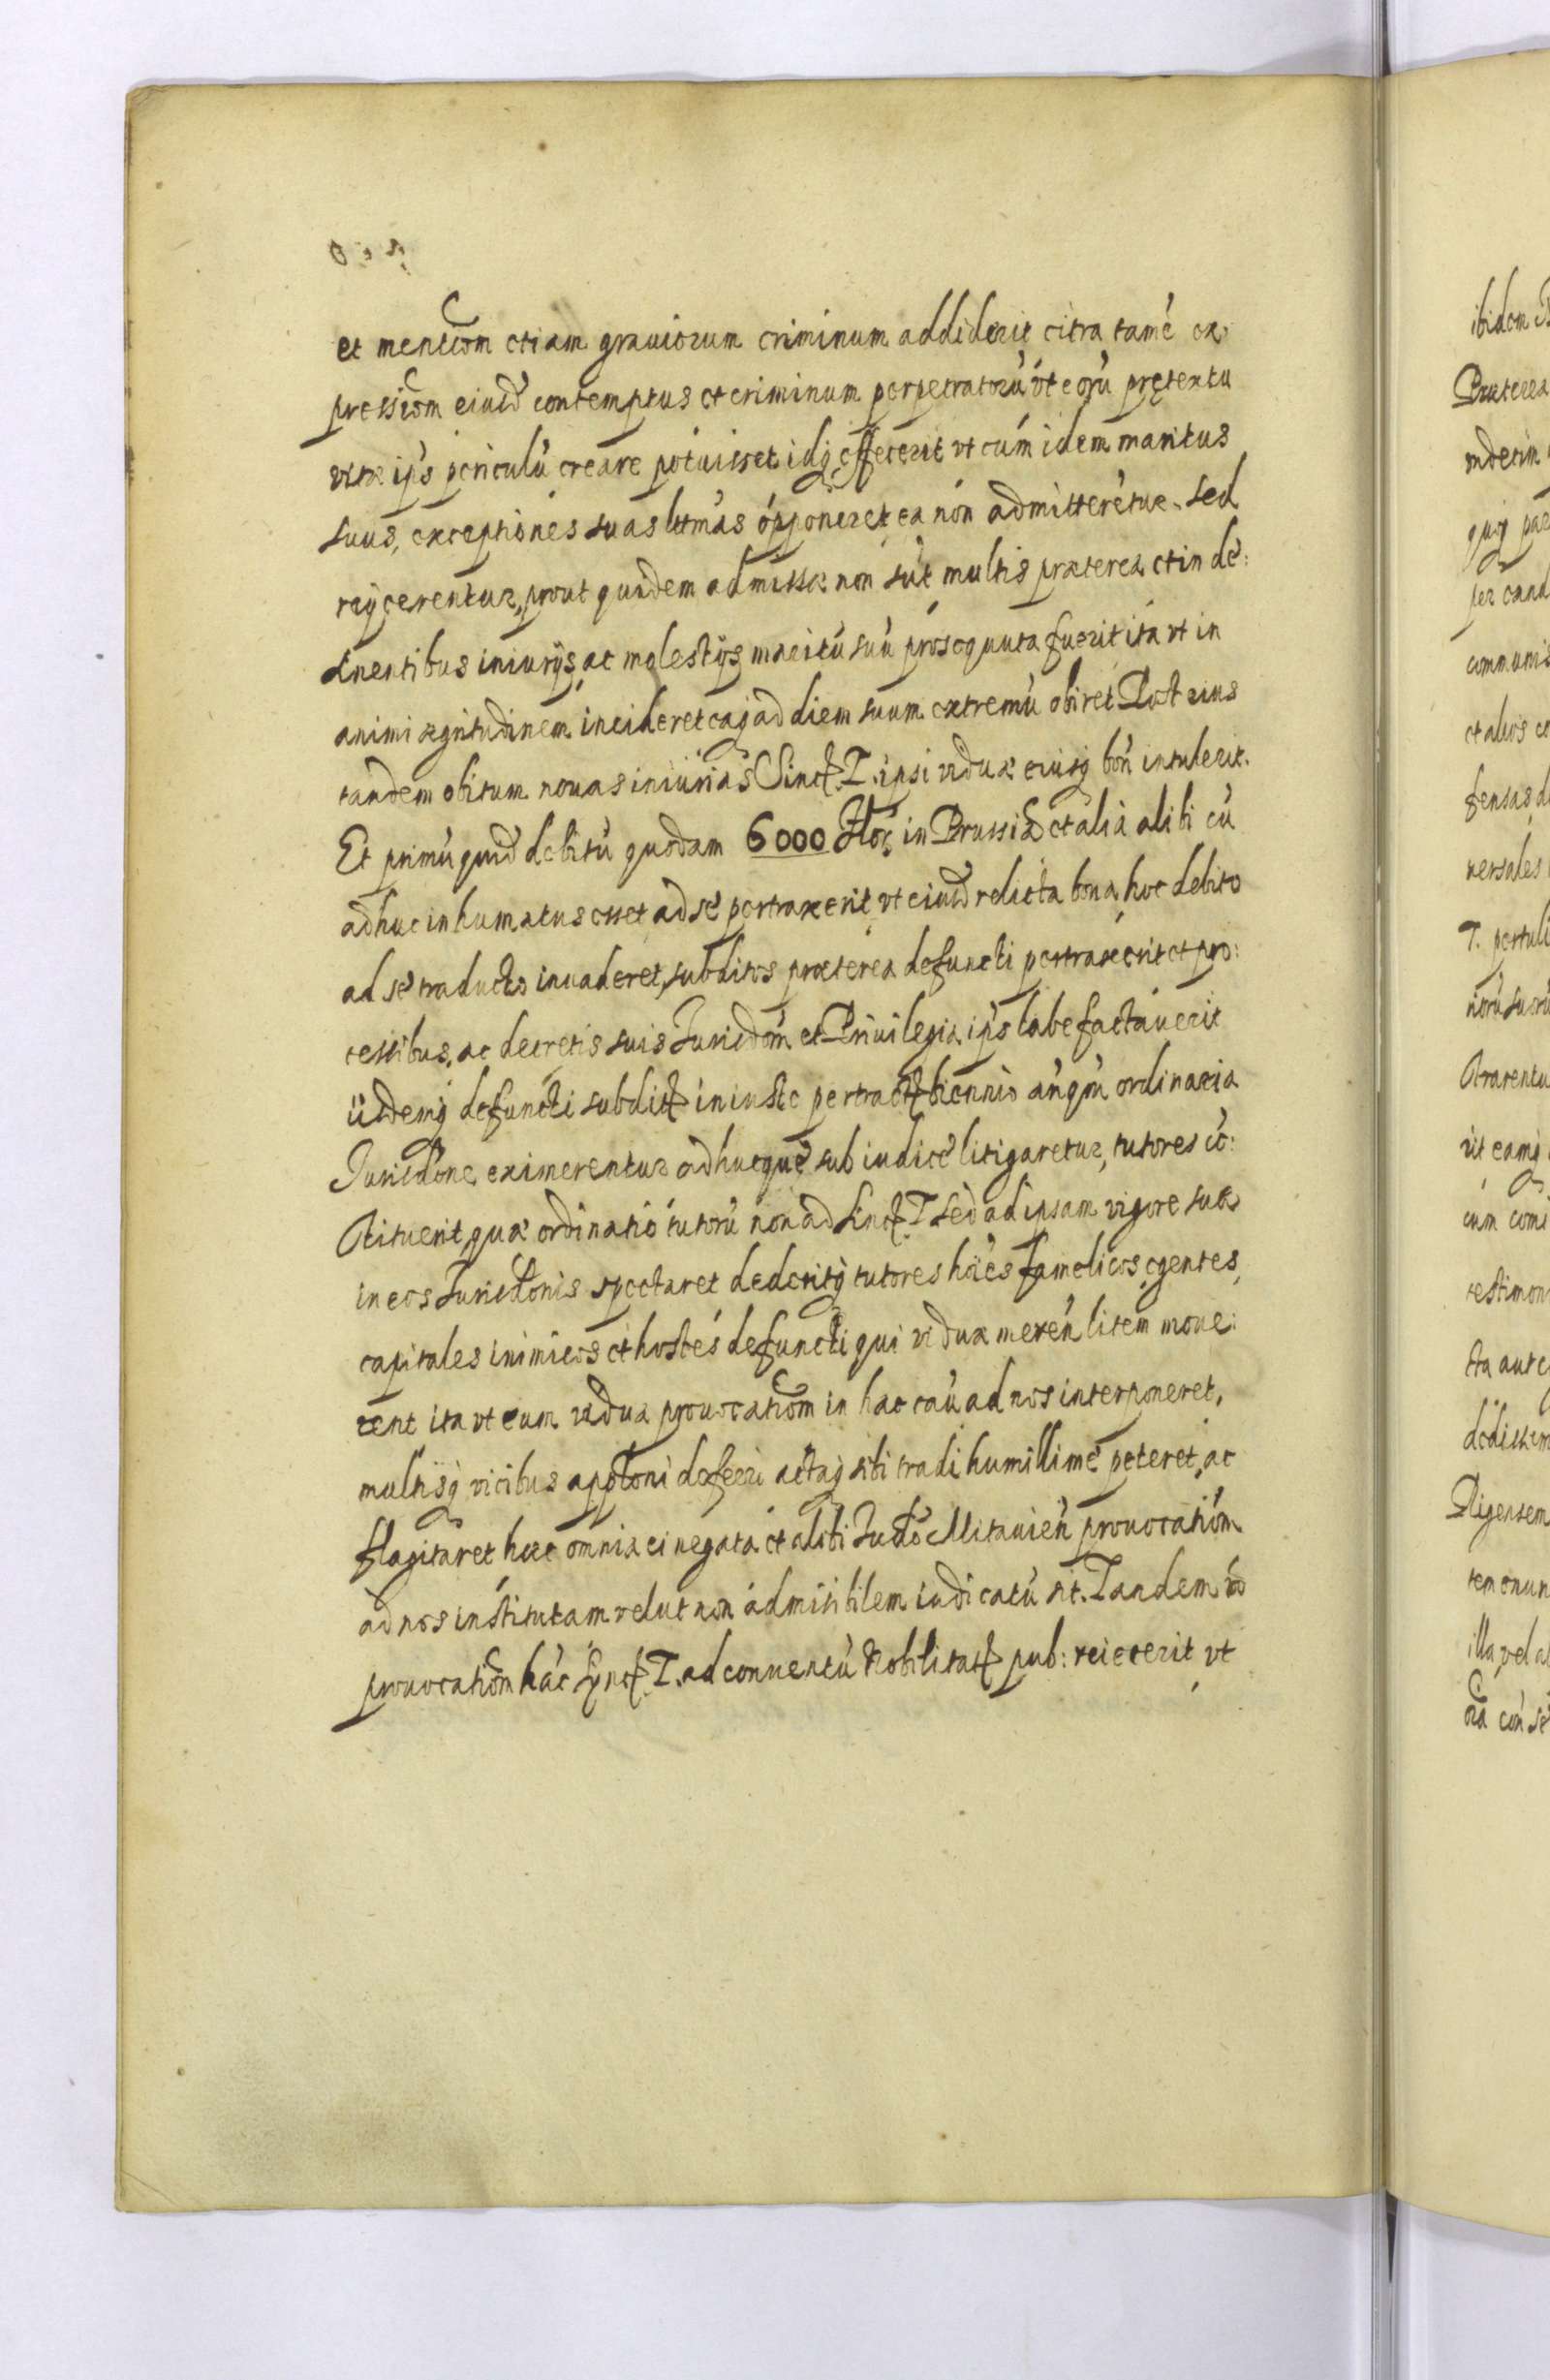 et mentiom etiam grauiorum criminum addiderit citra tamē ex
pressiom eiusd contemptus et criminum perpetratorū ut eorū prętextu
vitæ ips periculū creare potuisset idq effecerit vt cum idem maritus
suus, exceptiones suas ltmas opponeret ea non admitterētur sed
reijcerentur, prout quidem admissæ non sūt multis præterea et in dē:
cinentibus iniurijs ac molestijs maritū suū prosequuta fuerit ita vt in
animi ægritudinem incideret eaq ad diem suum extremū obiret Post eius
tandem obitum nouas iniurias Sinctt T. ipsi viduæ eiusq bon intulerit.
Et primū quid debitū quodam 6000 flor in Prussia et alia alibi cū
adhuc inhumatus esset ad sē pertraxerit vt eiusd relicta bona hoc debito
ad sē traducto inuaderet, subditos præterea defuncti pertraxerit et pro:
cessibus, ac decretis suis Jurisdōm et Priuilegia ips labefactauerit
iisdemq defuncti subditt iniuste pertractt biennio anqm ordinaria
Jurisdōne eximerentur adhucque sub iudice litigaretur, tutores cō:
stituerit, quæ ordinatio tutorū non ad Sinctt T sed ad ipsam vigore suæ
in eos Jurisdōnis spectaret dederitq tutores hoies famelicos egentes
capitales inimicos et hostes defuncti qui viduæ meren litem moue:
rent ita vt cum vidua prouocatiom in hac cau ad nos interponeret,
multisq vicibus applōni deferri actaq sibi tradi humillimē peteret, ac
flagitaret hæc omnia ei negata et alibi Judo Mitauien prouocatiom
ad nos institutam velut non admissibilem iudicatū sit. Tandem vō
prouocatiom hāc Synctt T. ad conuentū Nobilitatt pub: reiecerit vt
ibidem
Præterea
per eand
communis
et alios co
fensas d
uersales
T. pertuli
norū suorū
strarentu
vit eamq
cum comi
testimon
dedissem
Digensem
illa vel a
con se